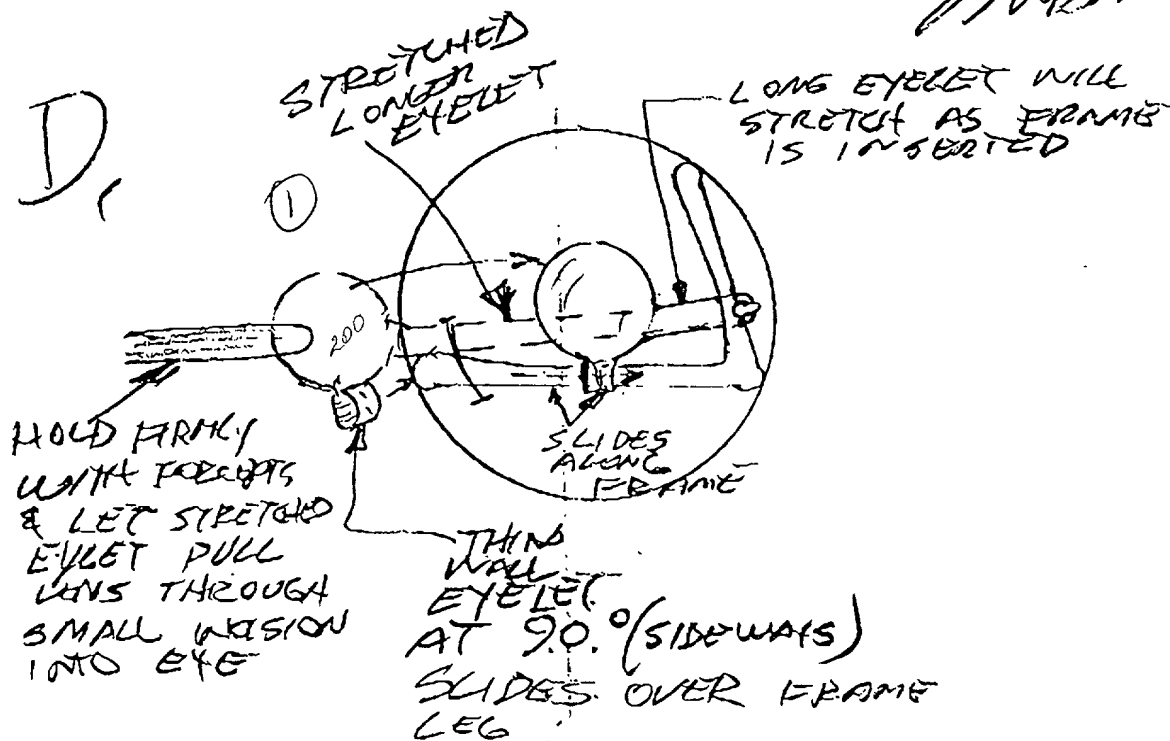 D,
STRETCHED
LONGER
EYELET
LONG EYELET WILL
STRETCH AS FRAME
IS INSERTED
1
200
HOLD FIRMLY
WITH FORCEPTS
& LET STRETCHED
EYLET PULL
LENS THROUGH
SMALL INCISION
INTO EYE
SLIDES
ALONG
FRAME
THIN
WALL
EYELET
AT 90.° (SIDEWAYS)
SLIDES OVER FRAME
LEG